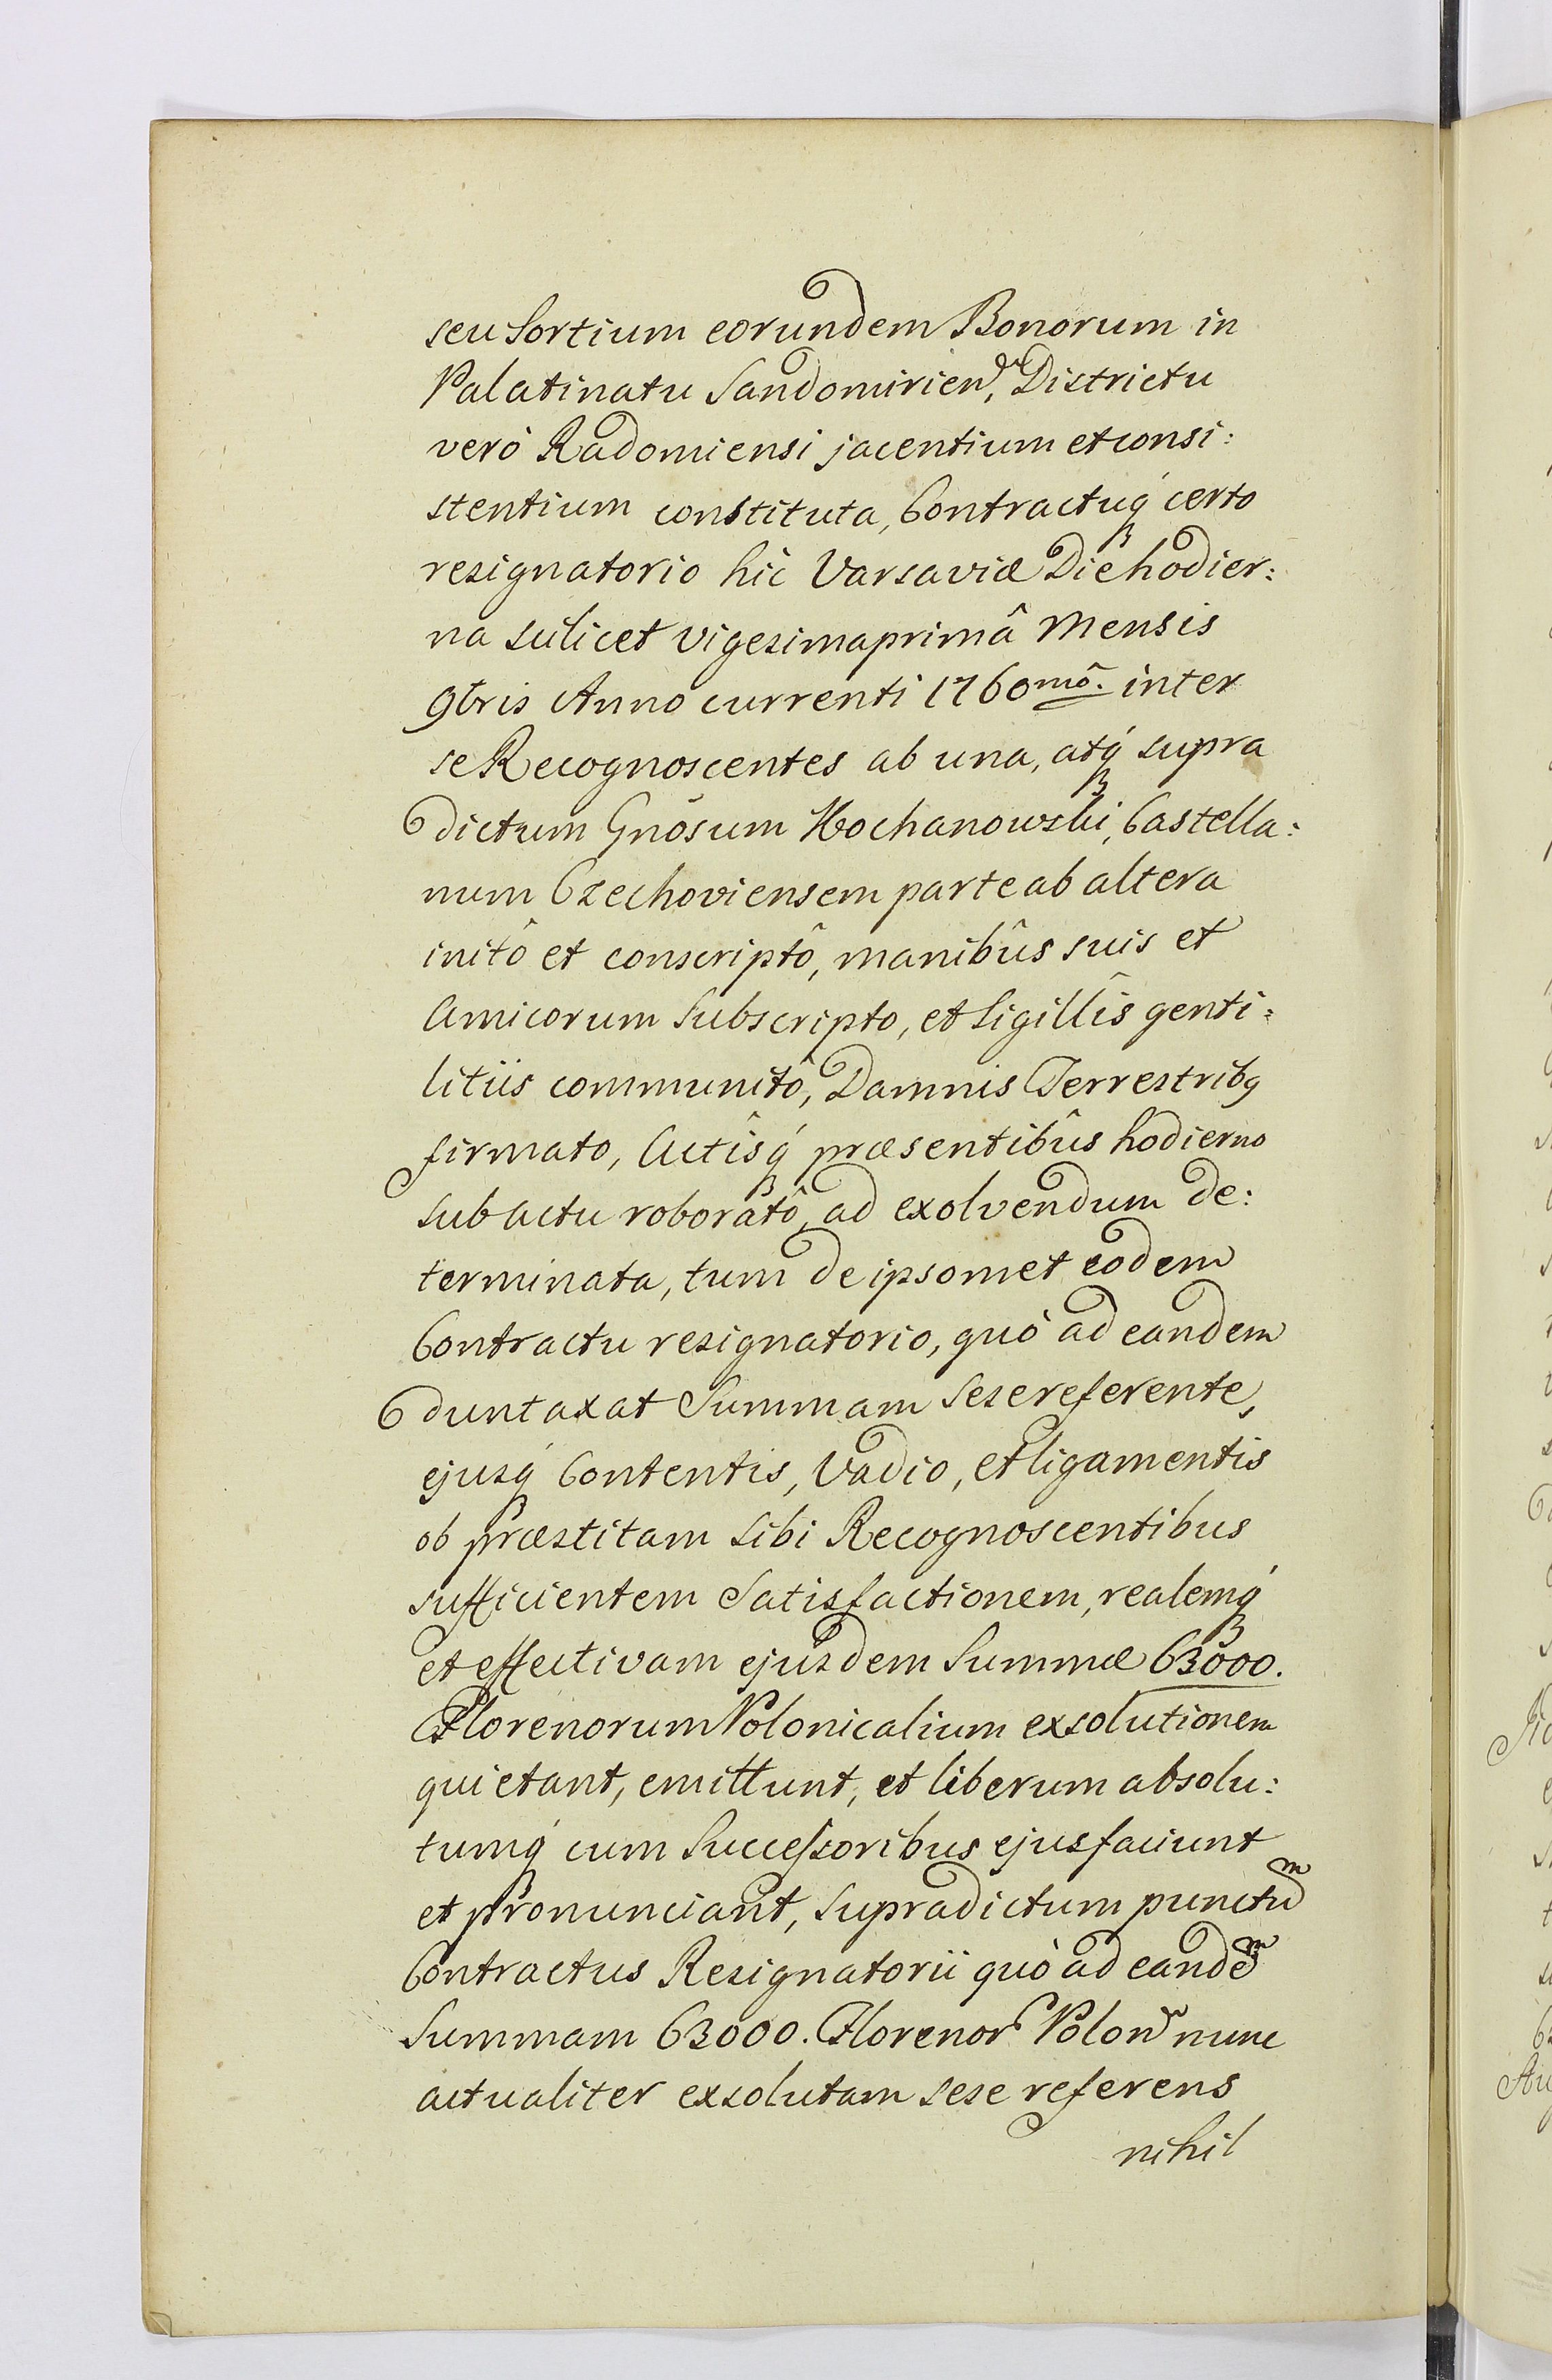 seu Sortium eorundem Bonorum in
Palatinatu Sandomirien, Districtu
verò Radomiensi jacentium et consi:
stentium constituta, Contractuq́ certo
resignatorio hic Varsaviæ Die hodier:
na scilicet vigesimaprimâ Mensis
9bris Anno currenti 1760mô. inter
se Recognoscentes ab una, atq́ supra
dictum Gnosum Kochanowski, Castella:
num Czechoviensem parte ab altera
initô et conscriptô, manibûs suis et
Amicorum Subscripto, et Sigillîs genti:
litiis communitô, Damnis Terrestribq
firmato, Actîsq́ præsentibûs hodierno
sub actu roboratô, ad exolvendum de:
terminata, tum de ipsomet eodem
Contractu resignatorio, quò ad eandem
duntaxat Summam sese referente,
ejusq́ Contentis, Vadio, et ligamentis
ob præstitam sibi Recognoscentibus
sufficientem Satisfactionem, realemq́
et effectivam ejusdem Summæ 63000.
Florenorum Polonicalium exsolutionem
quietant, emittunt, et liberum absolu:
tumq́ cum Successoribus ejus faciunt
et pronunciant, supradictum punctum
Contractus Resignatorii quò ad eandem
Summam 63000. Florenor Polon nunc
actualiter exsolutam sese referens
nihil